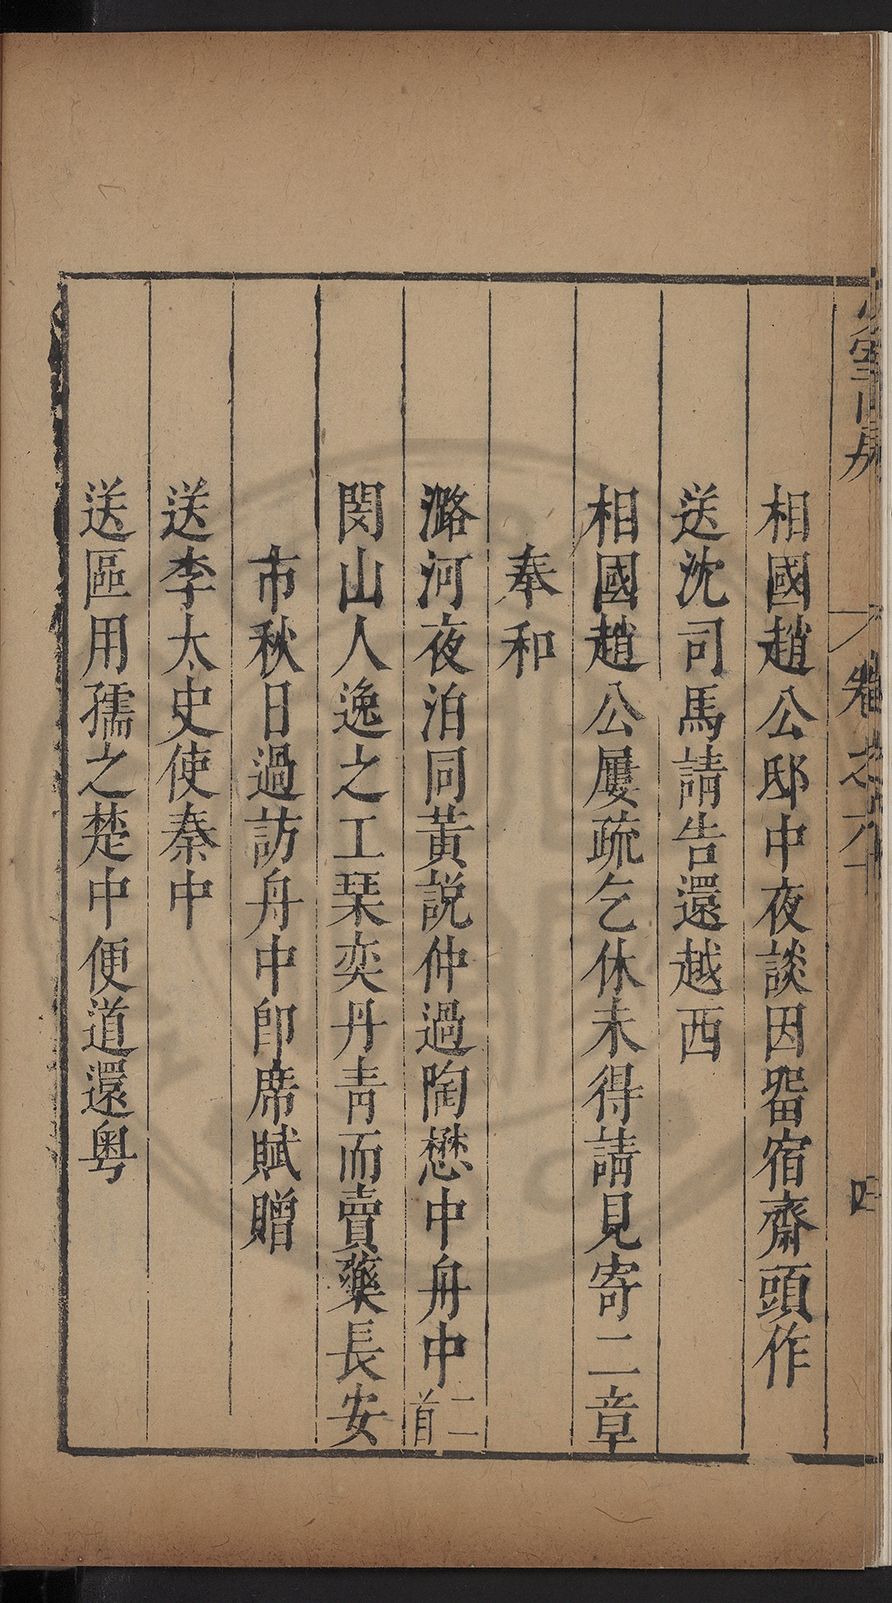 卷之六十
四
相國趙公邸中夜談因畱宿齋頭作
送沈司馬請告還越西
相國趙公屢疏乞休未得請見寄二章
奉和
潞河夜泊同黃說仲過陶懋中舟中二首
閔山人逸之工琹奕丹靑而賣藥長安
市秋日過訪舟中卽席賦贈
送李太史使秦中
送區用孺之楚中便道還粤